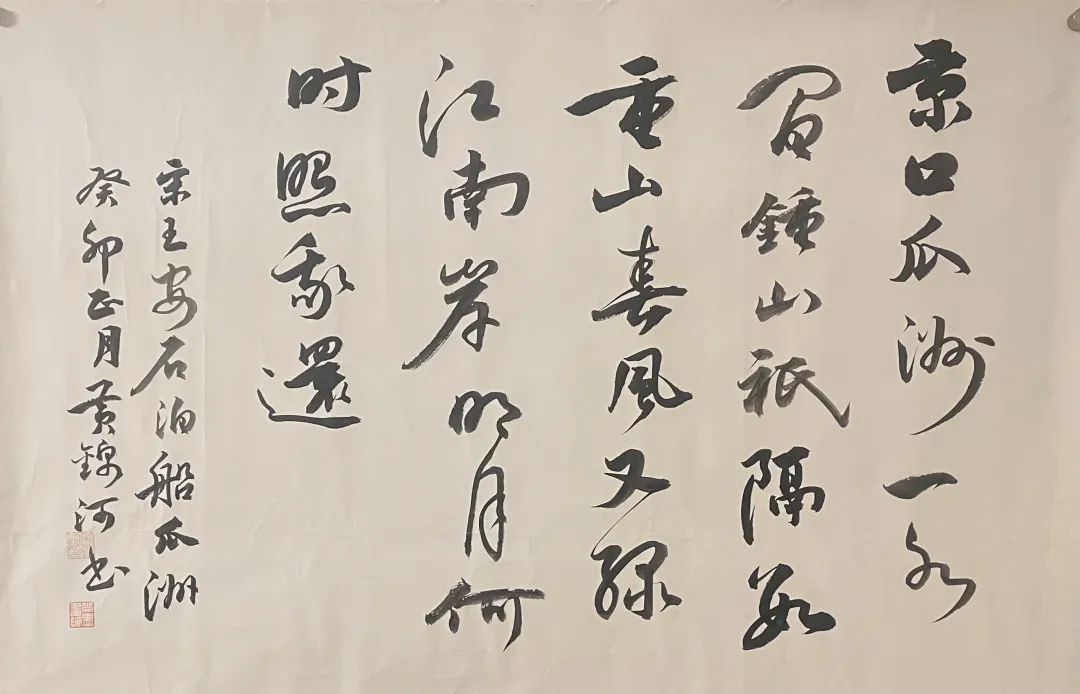 京口瓜洲一水
间鍾山祇隔數
重山春風又綠
江南岸明月何
时照我還
宋王安石泊船瓜洲
癸卯正月黄錦河书